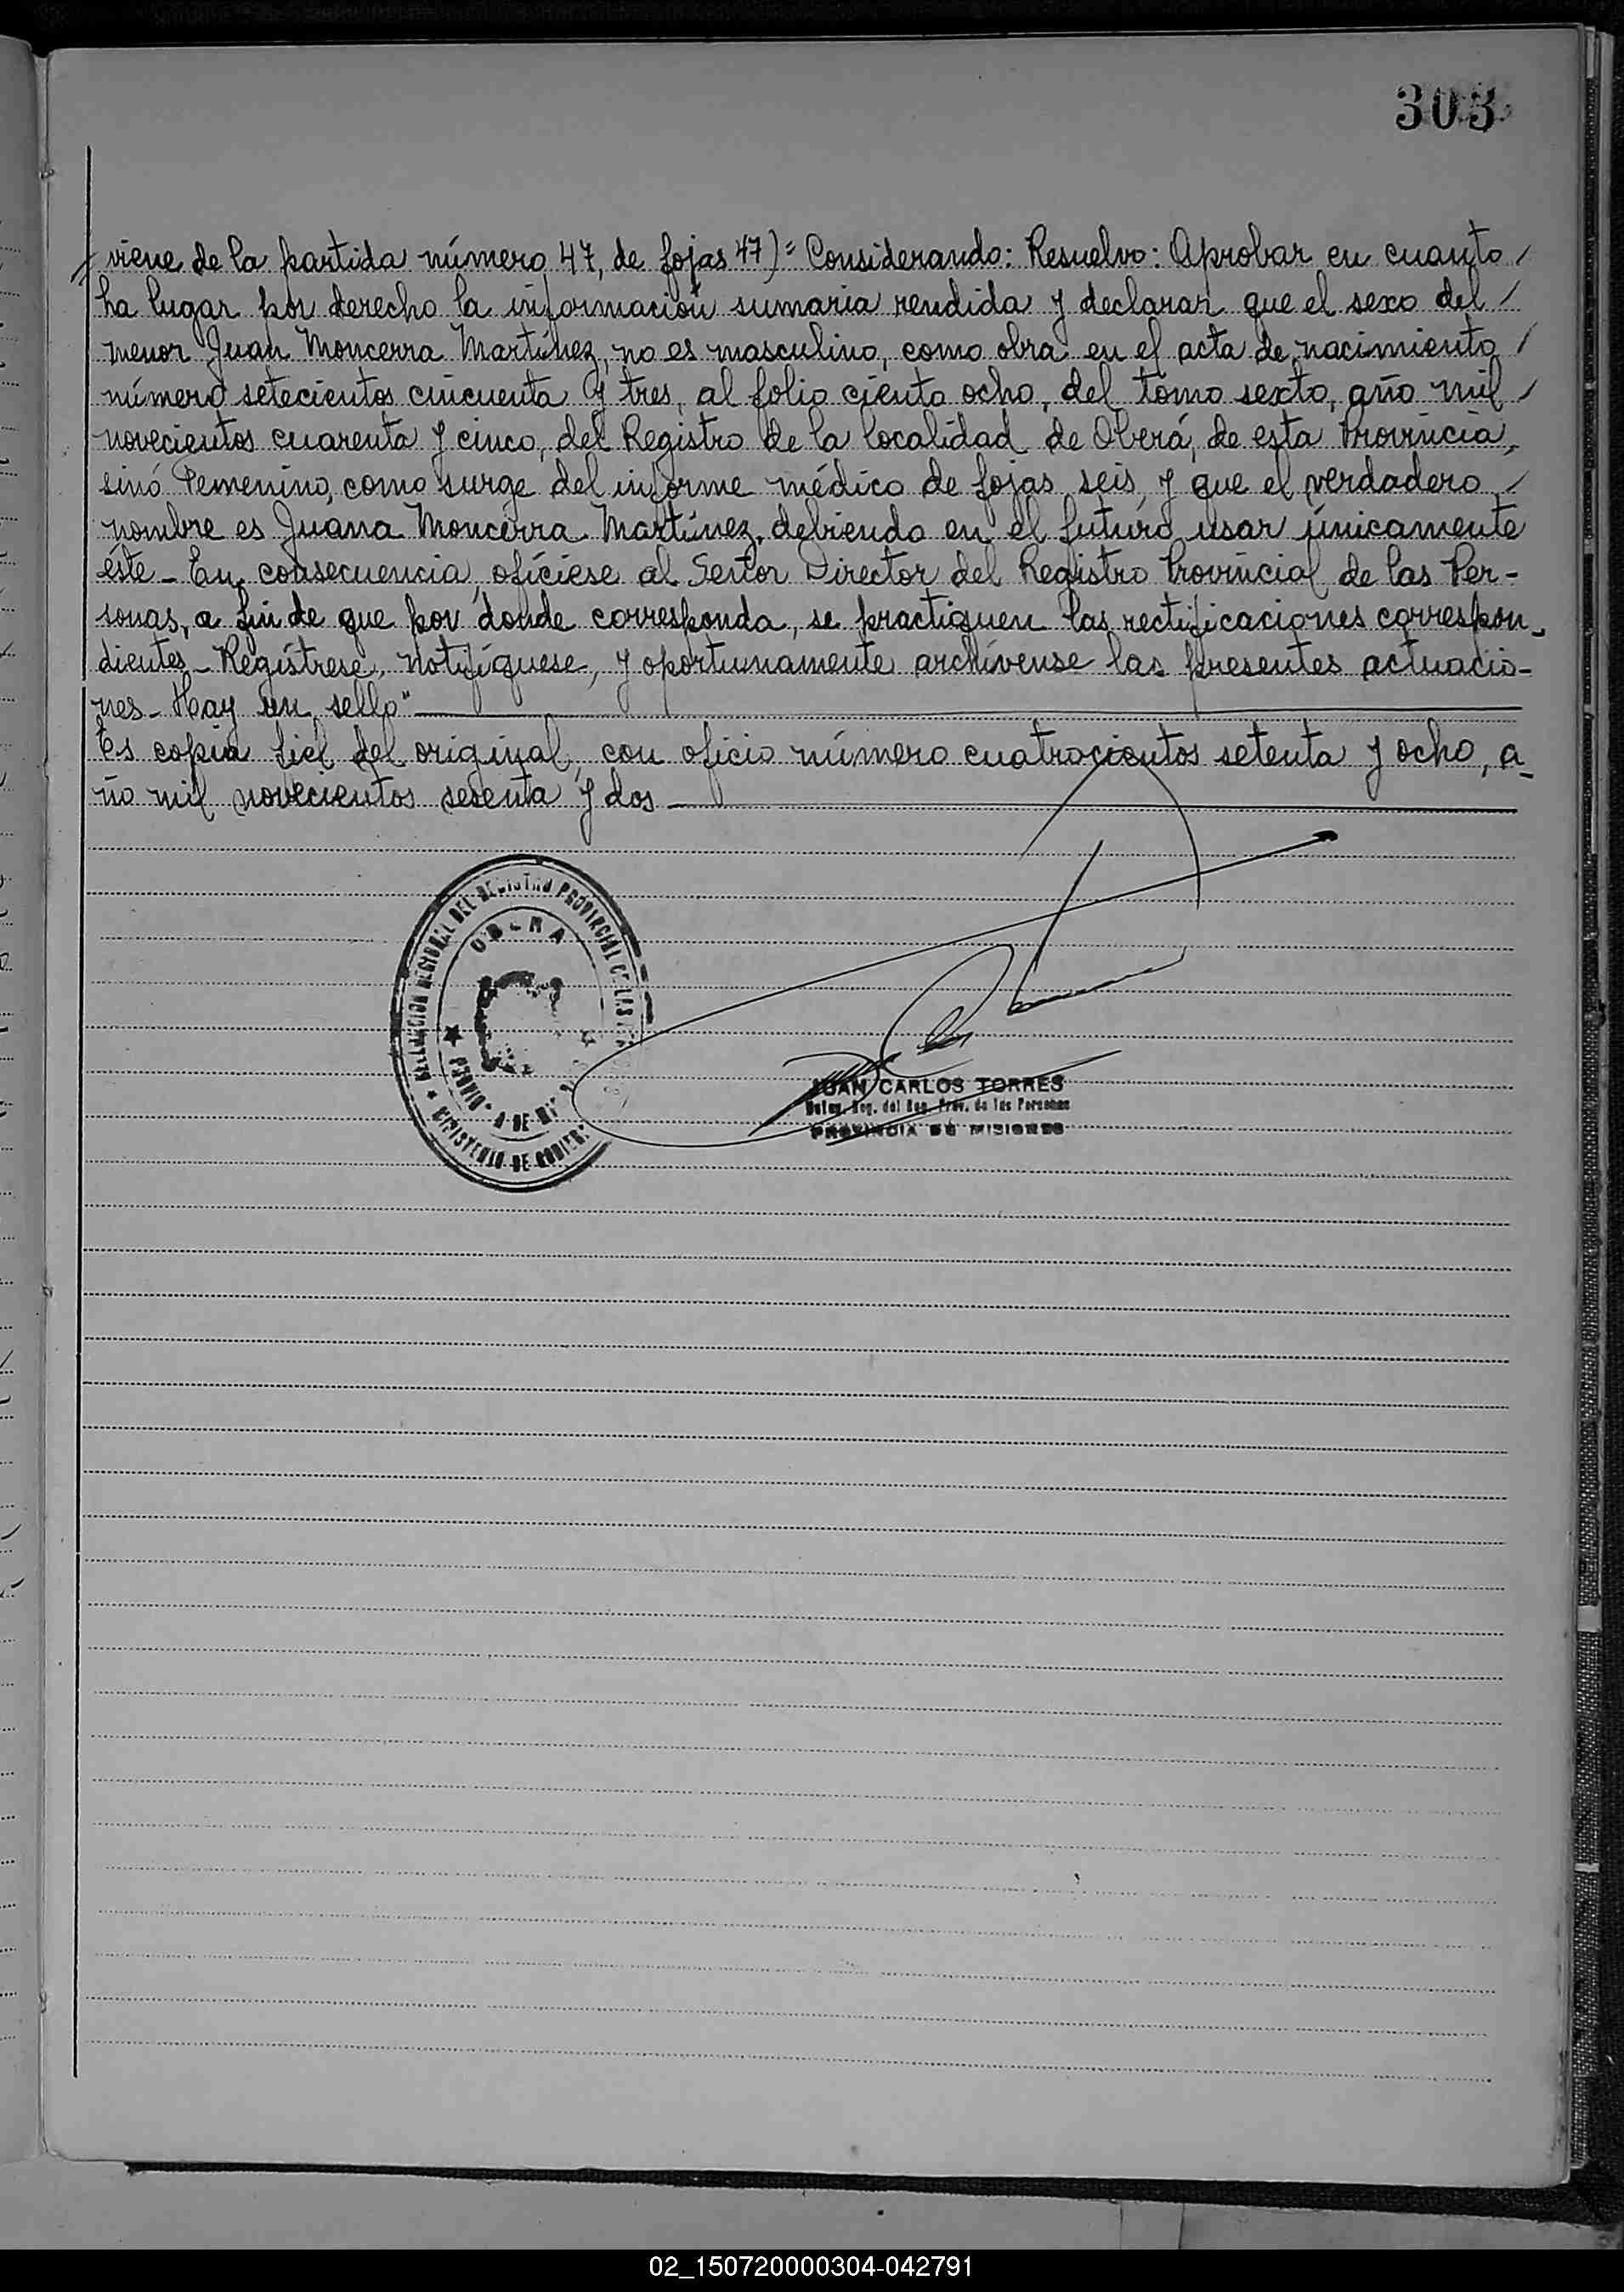 303
viene de la partida número 47, de fojas 47)= Considerando: Resuelvo: Aprobar en cuanto /
ha lugar por derecho la información sumaria rendida y declarar que el sexo del /
menor Juan Moncerra Martínez, no es masculino, como obra en el acta de nacimiento /
número setecientos cincuenta y tres, al folio ciento ocho, del tomo sexto, año mil /
novecientos cuarenta y cinco, del Registro de la localidad de Oberá, de esta Provincia,
sinó Femenino, como surge del informe médico de fojas seis, y que el verdadero /
nombre es Juana Moncerra Martínez, debiendo en el futuro usar únicamente
éste_ En consecuencia, ofíciese al Señor Director del Registro Provincial de las Per-
sonas, a fin de que por donde corresponda, se practiquen las rectificaciones correspon-
dientes_ Regístrese, notifíquese, y oportunamente archívense las presentes actuacio-
nes_ Hay un sello"
Es copia fiel del original, con oficio número cuatrocientos setenta y ocho, a-
ño mil novecientos sesenta y dos
REGIONAL DEL REGISTRO PROVINCIAL DE LAS
OBERA
MINISTERIO DE
JUAN CARLOS TORRES
Deleg. Reg. del Reg. Prov. de las Personas
PROVINCIA DE MISIONES
02_150720000304-042791